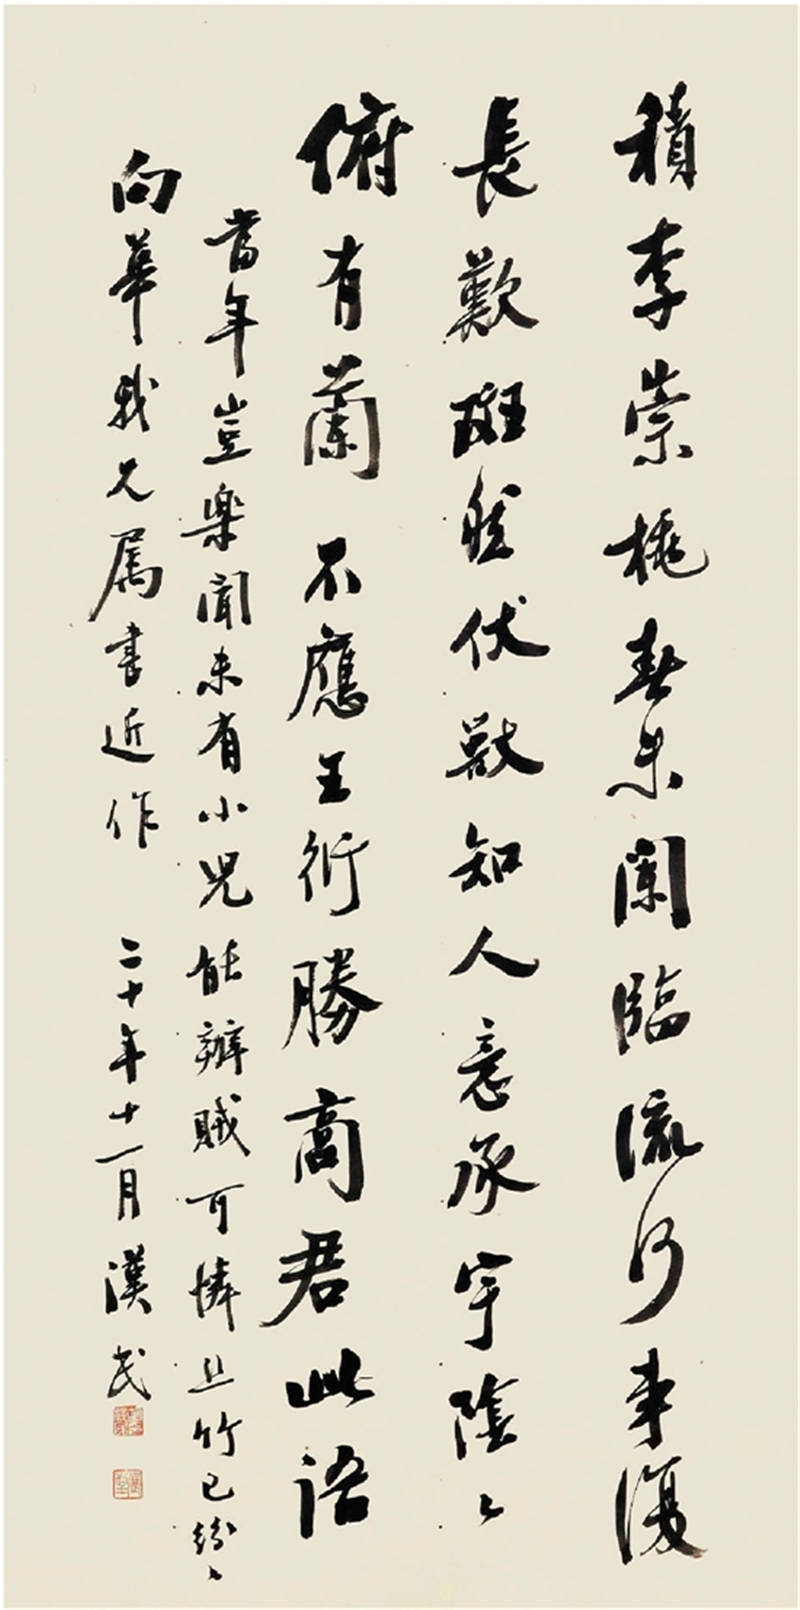 積李崇桃春未闌臨流何事復
長歎斑然伏獸知人意承宇陰〻
俯有蘭 不應王衍勝高君此語
當年豈樂聞未有小兒能辦賊可憐丘竹已紛〻
向華我兄属書近作 二十年十一月 漢民